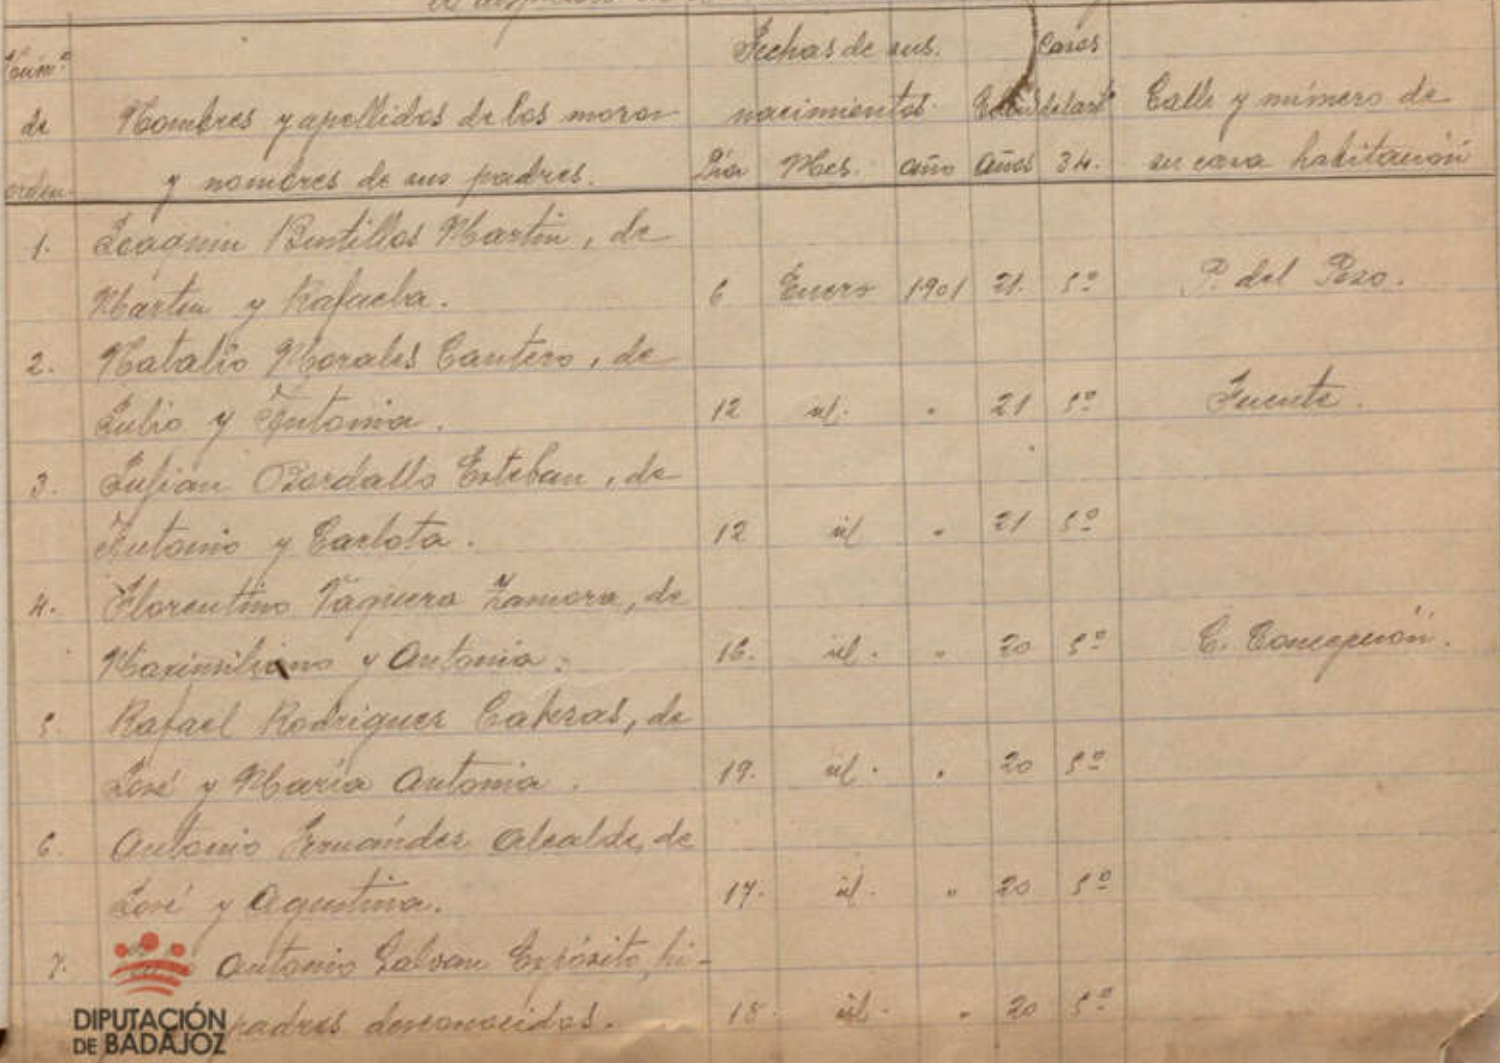 Fechas de sus. Casos
Núm.º
de Nombres y apellidos de los mozos nacimientos. Edad del artº Calle y número de
orden. y nombres de sus padres. Día Mes. año años 34. su casa habitación
1. Joaquin Bustillos Martin, de
Martin y Rafaela. 6 Enero 1901 21. 5º P. del Pozo.
2. Natalio Morales Cantero, de
Julio y Antonia. 12 id. " 21 5º Fuente.
3. Julian Bordallo Esteban, de
Antonio y Carlota. 12 id " 21 5º
4. Florentino Vaquera Zamora, de
Maximiliano y Antonia. 16. id. " 20 5º C. Concepción.
5. Rafael Rodriguez Cabezas, de
José y Maria Antonia. 19. id. " 20 5º
6. Antonio Fernández Alcalde, de
José y Agustina. 17. id. " 20 5º
7. Antonio Galvan Expósito, hi-
padres desconocidos. 18. id. " 20 5º
DIPUTACIÓN
DE BADAJOZ